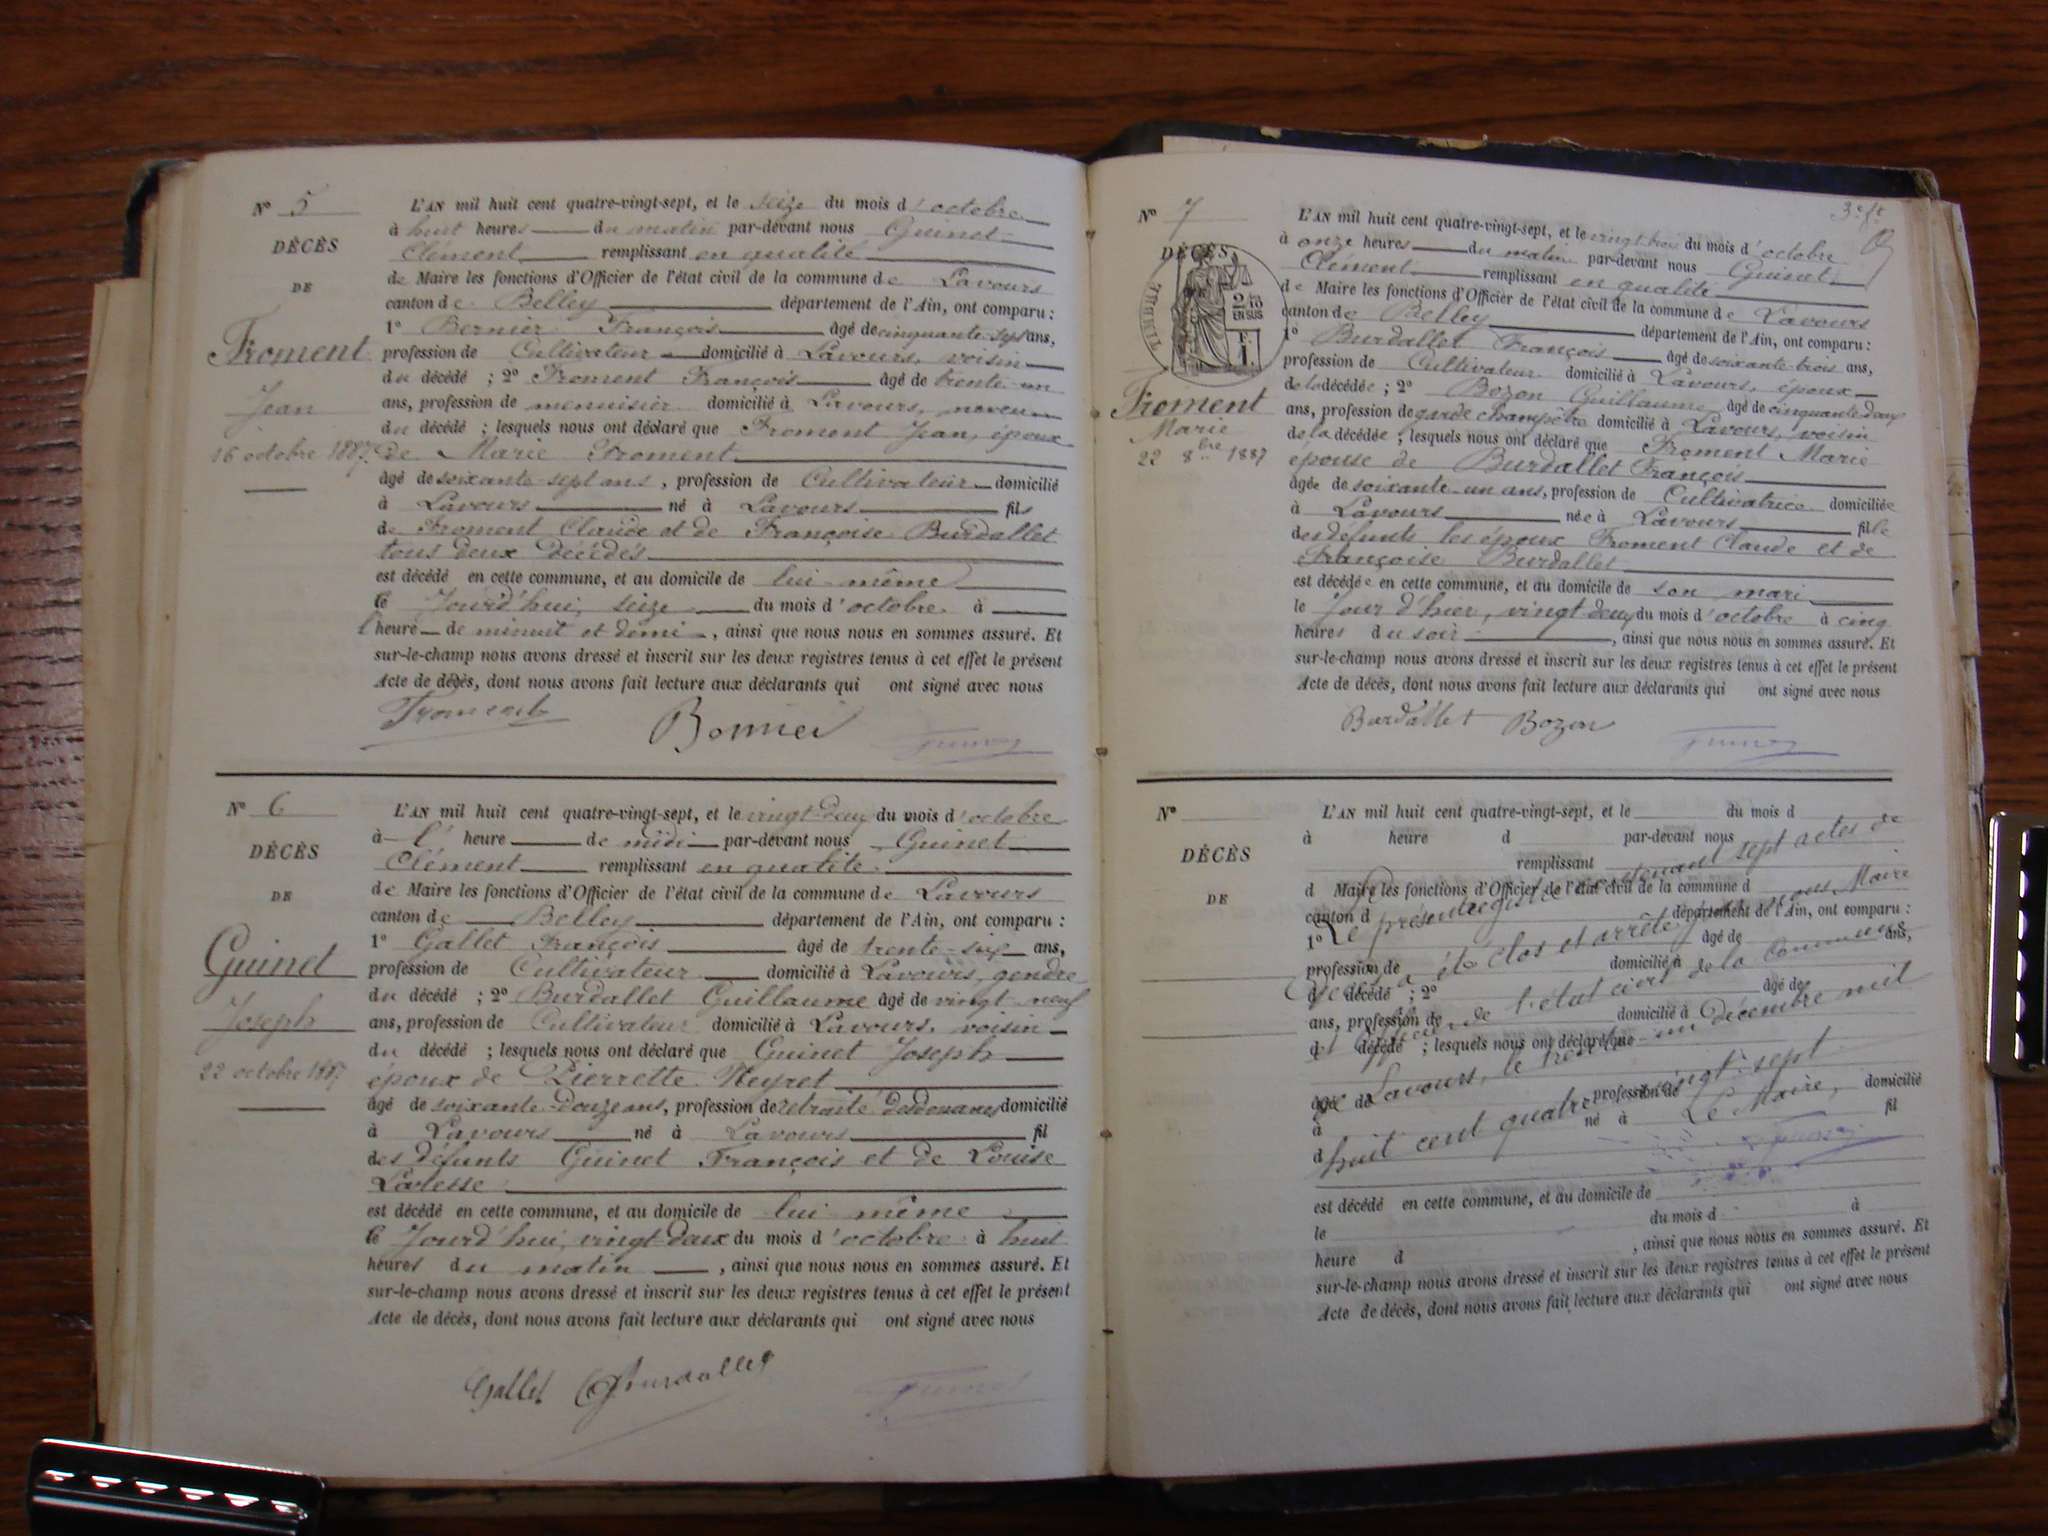 N° 5
DÉCÈS
DE
Froment
Jean
16 octobre 1887.
L'AN mil huit cent quatre-vingt-sept, et le seize du mois d'octobre
à huit heures du matin par-devant nous Guinet
Clément remplissant en qualité
de Maire les fonctions d'Officier de l'état civil de la commune de Lavours
canton de Belley département de l'Ain, ont comparu :
1° Bernier François âgé de cinquante-sept ans,
profession de Cultivateur domicilié à Lavours, voisin
du décédé ; 2° Froment François âgé de trente-un
ans, profession de menuisier domicilié à Lavours, neveu
du décédé ; lesquels nous ont déclaré que Froment Jean, époux
de Marie Froment
âgé de soixante-sept ans, profession de Cultivateur domicilié
à Lavours né à Lavours fils
de Froment Claude et de Françoise Burdallet
tous deux décédés
est décédé en cette commune, et au domicile de lui-même
le Jourd'hui, seize du mois d'octobre à
l'heure de minuit et demi, ainsi que nous nous en sommes assuré. Et
sur-le-champ nous avons dressé et inscrit sur les deux registres tenus à cet effet le présent
Acte de décès, dont nous avons fait lecture aux déclarants qui ont signé avec nous
Froment
N° 6
DÉCÈS
DE
Guinet
Joseph
22 octobre 1887
L'AN mil huit cent quatre-vingt-sept, et le vingt-deux du mois d'octobre
à l'heure de midi par-devant nous Guinet
Clément remplissant en qualité
de Maire les fonctions d'Officier de l'état civil de la commune de Lavours
canton de Belley département de l'Ain, ont comparu :
1° Gallet François âgé de trente-six ans,
profession de Cultivateur domicilié à Lavours, gendre
du décédé ; 2° Burdallet Guillaume âgé de vingt-neuf
ans, profession de Cultivateur domicilié à Lavours, voisin
du décédé ; lesquels nous ont déclaré que Guinet Joseph
époux de Pierrette Neyret
âgé de soixante-douze ans, profession de retraité des douanes domicilié
à Lavours né à Lavours fil
des défunts Guinet François et de Louise
est décédé en cette commune, et au domicile de lui-même
le Jourd'hui, vingt-deux du mois d'octobre à huit
heures du matin, ainsi que nous nous en sommes assuré. Et
sur-le-champ nous avons dressé et inscrit sur les deux registres tenus à cet effet le présent
Acte de décès, dont nous avons fait lecture aux déclarants qui ont signé avec nous
Gallet Burdallet
3e ft
N° 7
DÉCÈS
TIMBRE
2/10
EN SUS
Froment
Marie
22 8bre 1887
L'AN mil huit cent quatre-vingt-sept, et le vingt-trois du mois d'octobre
à onze heures du matin par-devant nous Guinet
Clément remplissant en qualité
de Maire les fonctions d'Officier de l'état civil de la commune de Lavours
canton de Belley département de l'Ain, ont comparu :
1° Burdallet François âgé de soixante-trois ans,
profession de Cultivateur domicilié à Lavours, époux
de la décédée ; 2° Bozon Guillaume âgé de cinquante-deux
ans, profession de garde champêtre domicilié à Lavours, voisin
de la décédée ; lesquels nous ont déclaré que Froment Marie
épouse de Burdallet François
âgée de soixante-un ans, profession de Cultivatrice domiciliée
à Lavours née à Lavours fille
des défunts les époux Froment Claude et de
Françoise Burdallet
est décédée en cette commune, et au domicile de son mari
le Jour d'hier, vingt-deux du mois d'octobre à cinq
heures du soir, ainsi que nous nous en sommes assuré. Et
sur-le-champ nous avons dressé et inscrit sur les deux registres tenus à cet effet le présent
Acte de décès, dont nous avons fait lecture aux déclarants qui ont signé avec nous
Burdallet Bozon
N°
DÉCÈS
DE
L'AN mil huit cent quatre-vingt-sept, et le du mois d
à heure d par-devant nous
remplissant
d Maire les fonctions d'Officier de l'état civil de la commune d
canton d département de l'Ain, ont comparu :
1° âgé de ans,
profession de domicilié à
d décédé ; 2° âgé de
ans, profession de domicilié à
d décédé ; lesquels nous ont déclaré que
âgé de profession de domicilié
à né à fil
d
est décédé en cette commune, et au domicile de
le du mois d à
heure d , ainsi que nous nous en sommes assuré. Et
sur-le-champ nous avons dressé et inscrit sur les deux registres tenus à cet effet le présent
Acte de décès, dont nous avons fait lecture aux déclarants qui ont signé avec nous
Le présent registre contenant sept actes de
décès a été clos et arrêté par nous Maire
et officier de l'état civil de la Commune
de Lavours, le trente-un décembre mil
huit cent quatre-vingt-sept
Le Maire,